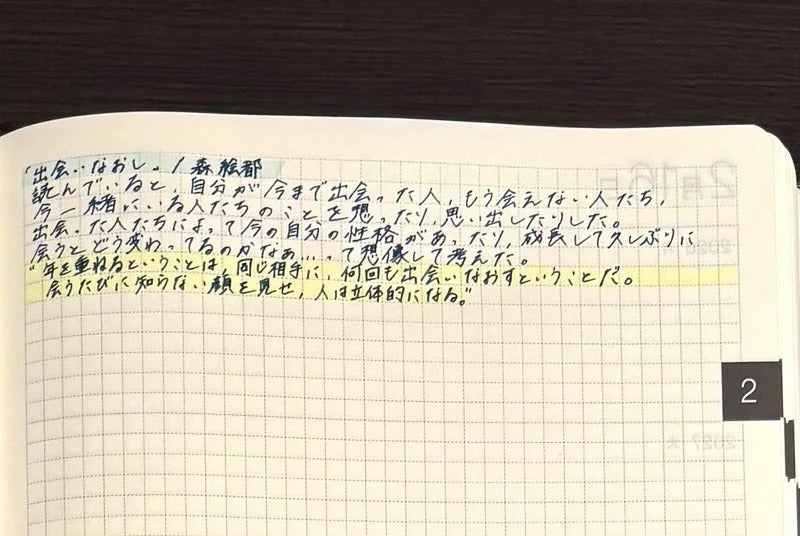 「出会いなおし」/ 森絵都
読んでいると、自分が今まで出会った人、もう会えない人たち、
今一緒にいる人たちのことを想ったり、思い出したりした。
出会った人たちによって今の自分の性格があったり、成長して久しぶりに
会うとどう変わってるのかなぁ…って想像して考えた。
"年を重ねるということは、同じ相手に、何回も出会いなおすということだ。
会うたびに知らない顔を見せ、人は立体的になる。"
2